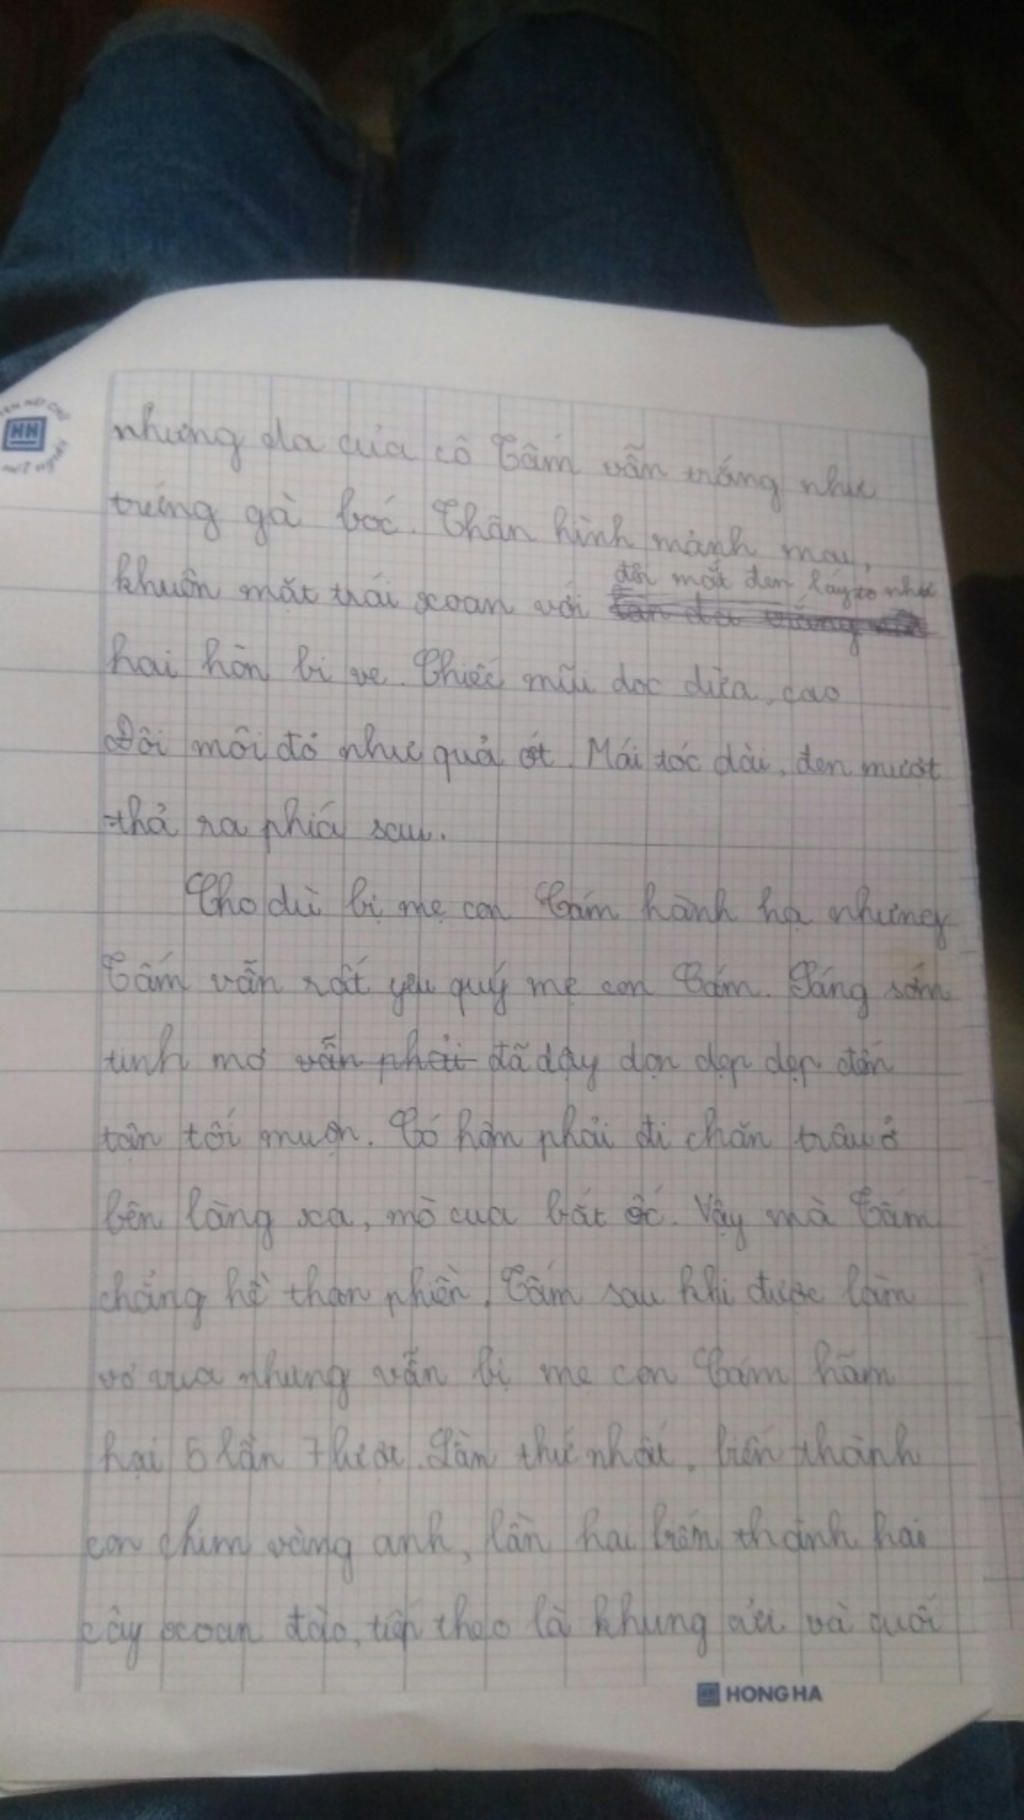 nhưng da của cô Tấm vẫn trắng như
trứng gà bóc. Thân hình mảnh mai,
khuôn mặt trái xoan với đôi mắt đen láy to như
hai hòn bi ve. Chiếc mũi dọc dừa, cao
Đôi môi đỏ như quả ớt. Mái tóc dài, đen mượt
thả ra phía sau.
Cho dù bị mẹ con Cám hành hạ nhưng
Tấm vẫn rất yêu quý mẹ con Cám. Sáng sớm
tinh mơ vẫn phải đã dậy dọn dẹp dẹp đến
tận tối muộn. Có hôm phải đi chăn trâu ở
bên làng xa, mò cua bắt ốc. Vậy mà Tấm
chẳng hề than phiền. Tấm sau khi được làm
vợ vua nhưng vẫn bị mẹ con Cám hãm
hại 5 lần 7 lượt. Lần thứ nhất, biến thành
con chim vàng anh, lần hai biến thành hai
cây xoan đào, tiếp theo là khung cửi và cuối
HH
HONG HA